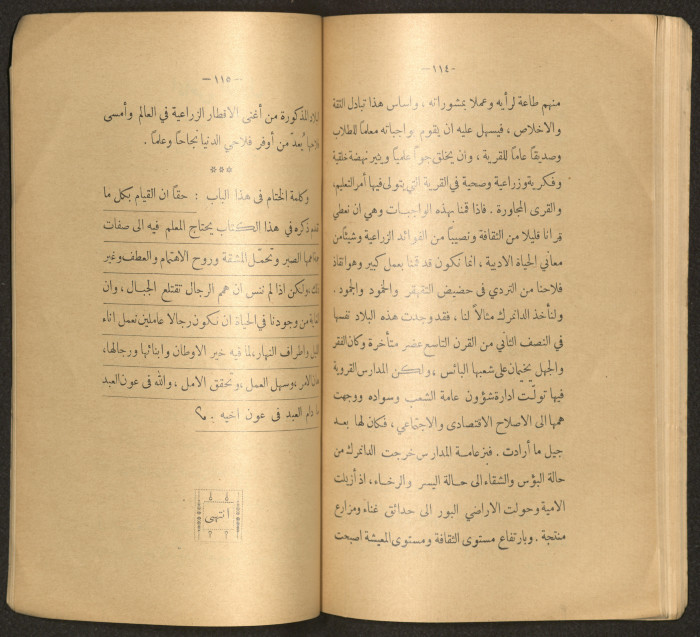 -١١٤-
منهم طاعة لرأيه وعملا بمشوراته ، واساس هذا تبادل الثقة
والاخلاص ، فيسهل عليه ان يقوم بواجباته معلماً للطلاب
وصديقاً عاماً للقرية ، وان يخلق جواً علمياً ويثير نهضة خلقية
وفكرية وزراعية وصحية في القرية التي يتولى فيها أمر التعليم،
والقرى المجاورة . فاذا قمنا بهذه الواجبات وهي ان نعطي
قرانا قليلا من الثقافة ونصيباً من الفوائد الزراعية وشيئاً من
معاني الحياة الادبية ، انما نكون قد قمنا بعمل كبير وهو انقاذ
فلاحنا من التردي في حضيض التقهقر والخمود والجمود .
ولنأخذ الدانمرك مثالاً لنا ، فقد وجدت هذه البلاد نفسها
في النصف الثاني من القرن التاسع عشر متأخرة وكان الفقر
والجهل يخيمان على شعبها البائس ، ولكن المدارس القروية
فيها تولّت ادارة شؤون عامة الشعب وسواده ووجهت
همها الى الاصلاح الاقتصادي والاجتماعي ، فكان لها بعد
جيل ما أرادت . فبزعامة المدارس خرجت الدانمرك من
حالة البؤس والشقاء الى حالة اليسر والرخاء، اذ أزيلت
الامية وحولت الاراضي البور الى حدائق غناء ومزارع
منتجة . وبارتفاع مستوى الثقافة ومستوى المعيشة اصبحت
-١١٥-
المذكورة من أغنى الاقطار الزراعية في العالم وأمسى
يُعدّ من أوفر فلاحي الدنيا نجاحاً وعلماً .
***
وكلمة الختام في هذا الباب : حقاً ان القيام بكل ما
تقدم ذكره في هذا الكتاب يحتاج المعلم فيه الى صفات
الصبر وتحمّل المشقة وروح الاهتمام والعطف وغير
ولكن اذا لم ننس ان همم الرجال تقتلع الجبال ، وان
من وجودنا في الحياة ان نكون رجالا عاملين نعمل اناء
الليل واطراف النهار، لما فيه خير الاوطان وابنائها ورجالها،
الامر ، وسهل العمل ، وتحقق الامل ، والله في عون العبد
ما دام العبد في عون اخيه .
انتهى